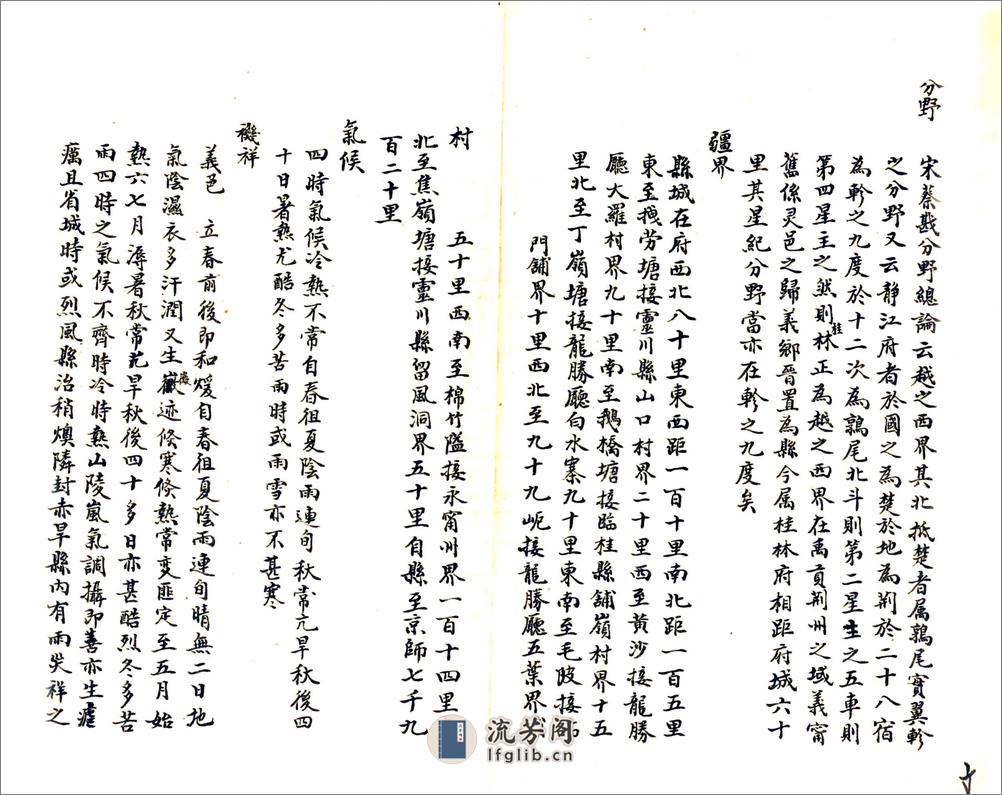 分野
宋蔡戡分野總論云越之西界其北抵楚者属鶉尾實翼軫
之分野又云静江府者於國之為楚於地為荆於二十八宿
為軫之九度於十二次為鶉尾北斗則第二星生之五車則
第四星主之然則桂林正為越之西界在禹貢荆州之域義甯
舊係灵邑之歸義鄉晉置為縣今属桂林府相距府城六十
里其星紀分野當亦在軫之九度矣
疆界
縣城在府西北八十里東西距一百十里南北距一百五里
東至拽劳塘接靈川縣山口村界二十里西至黄沙接龍勝
廳大羅村界九十里南至鵝橋塘接臨桂縣舖嶺村界十五
里北至丁嶺塘接龍勝廳白水寨九十里東南至毛陂接
門舖界十里西北至九十九岠接龍勝廳五葉界
村　五十里西南至棉竹隘接永甯州界一百十四里
北至焦嶺塘接靈川縣留風洞界五十里自縣至京師七千九
百二十里
氣候
四時氣候冷熱不常自春徂夏陰雨連旬秋常亢旱秋後四
十日暑熱尤酷冬多苦雨時或雨雪亦不甚寒
禨祥
義邑　立春前後即和煖自春徂夏陰雨連旬晴無二日地
氣陰濕衣多汗潤又生黴迹倐寒倐熱常变匪定至五月始
熱六七月溽暑秋常亢旱秋後四十多日亦甚酷烈冬多苦
雨四時之氣候不齊時冷時熱山陵嵐氣調攝即善亦生瘧
癘且省城時或烈風縣治稍燠隣封赤旱縣内有雨災祥之
流芳阁
lfglib.cn